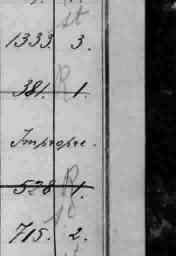 st
1333. 3.
R
381. 1.
Impropre.
R
528 1.
715. 2.